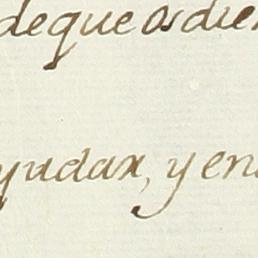 deque os dier
yudax, y en